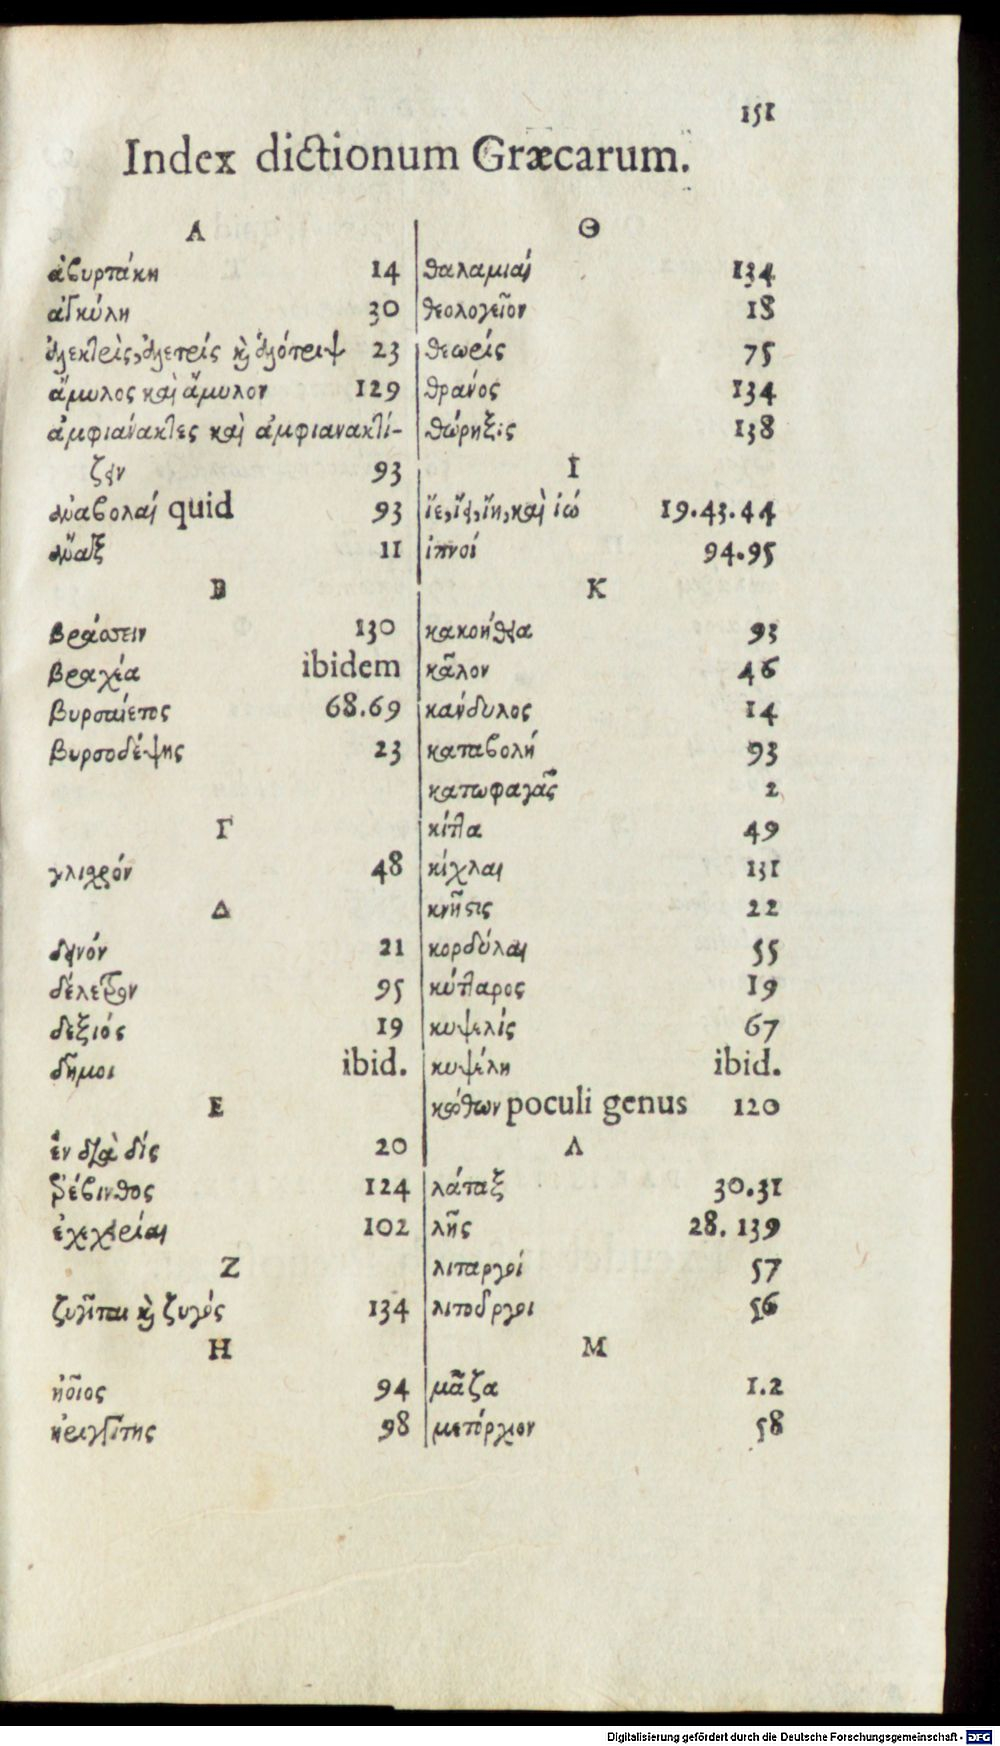 151
Index dictionum Græcarum.
Α
ἀβυρτάκη 14
ἀγκύλη 30
ἀλεκτρὶς, ἀλετρίς καὶ ἀλότριψ 23
ἄμυλος καὶ ἄμυλον 129
ἀμφιάνακτες καὶ ἀμφιανακτί-
ζειν 93
ἀναβολαί quid 93
11
Β
βράσσειν 130
βραχέα ibidem
βυρσαίετος 68.69
βυρσοδέψης 23
Γ
γλισχρόν 48
Δ
δεινόν 21
δέλετρον 95
δεξιός 19
δῆμοι ibid.
Ε
ἓν διὰ δίς 20
ἐρέβινθος 124
ἐχεχειρίαι 102
Ζ
ζυγῖται καὶ ζυγός 134
Η
ἠοῖος 94
98
Θ
θαλαμιαί 134
θεολογεῖον 18
θεωρίς 75
θρανός 134
θώρηξις 138
Ι
ἵε, ἵει, ἵη, καὶ ἰώ 19.43.44
ἰπνοί 94.95
Κ
κακοήθεια 93
κᾶλον 46
κάνδυλος 14
καταβολή 93
κατωφαγᾶς 2
κίττα 49
κίχλαι 131
κνῆσις 22
κορδύλαι 55
κύτταρος 19
κυψελίς 67
κυψέλη ibid.
κώθων poculi genus 120
Λ
λάταξ 30.31
λῆς 28. 139
λιταργοί 57
λιτουργοι 56
Μ
μᾶζα 1.2
58
Digitalisierung gefördert durch die Deutsche Forschungsgemeinschaft - DFG